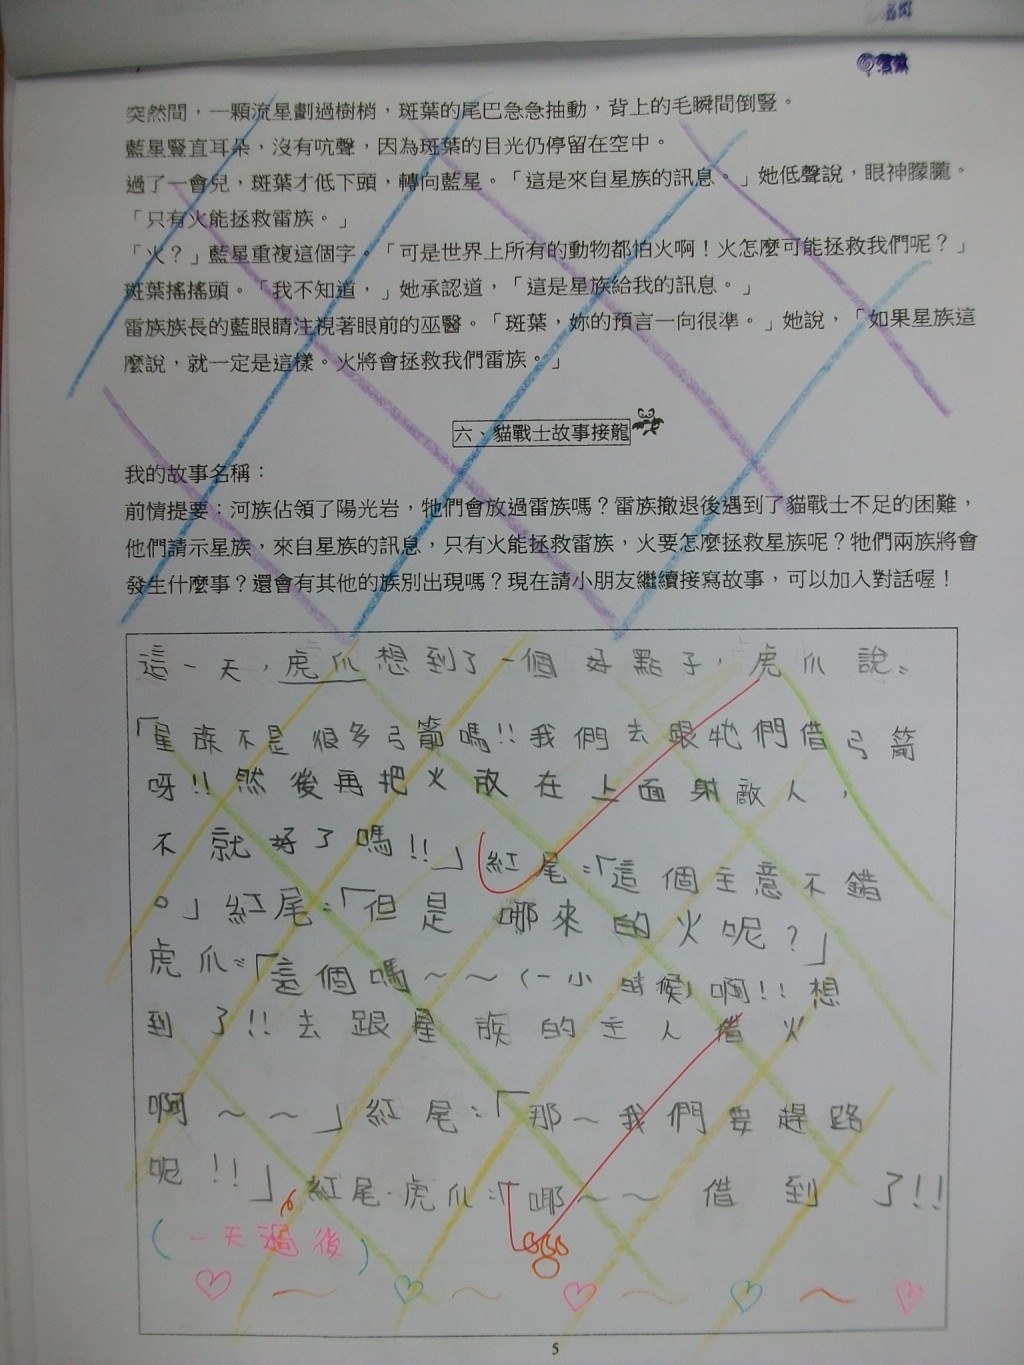 突然間，一顆流星劃過樹梢，斑葉的尾巴急急抽動，背上的毛瞬間倒豎。
藍星豎直耳朵，沒有吭聲，因為斑葉的目光仍停留在空中。
過了一會兒，斑葉才低下頭，轉向藍星。「這是來自星族的訊息。」她低聲說，眼神朦朧。
「只有火能拯救雷族。」
「火？」藍星重複這個字。「可是世界上所有的動物都怕火啊！火怎麼可能拯救我們呢？」
斑葉搖搖頭。「我不知道，」她承認道，「這是星族給我的訊息。」
雷族族長的藍眼睛注視著眼前的巫醫。「斑葉，妳的預言一向很準。」她說，「如果星族這
麼說，就一定是這樣。火將會拯救我們雷族。」
六、貓戰士故事接龍
我的故事名稱：
前情提要：河族佔領了陽光岩，牠們會放過雷族嗎？雷族撤退後遇到了貓戰士不足的困難，
他們請示星族，來自星族的訊息，只有火能拯救雷族，火要怎麼拯救星族呢？牠們兩族將會
發生什麼事？還會有其他的族別出現嗎？現在請小朋友繼續接寫故事，可以加入對話喔！
這一天，虎爪想到了一個好點子，虎爪說：
「星族不是很多弓箭嗎!!我們去跟牠們借弓箭
呀!!然後再把火放在上面射敵人，
不就好了嗎!!」紅尾：「這個主意不錯
。」紅尾：「但是哪來的火呢？」
虎爪：「這個嗎～～（一小時候）啊!!想
到了!!去跟星族的主人借火
啊～～」紅尾：「那～我們要趕路
呢!!」紅尾.虎爪：「耶～～借到了!!
（一天過後）
5